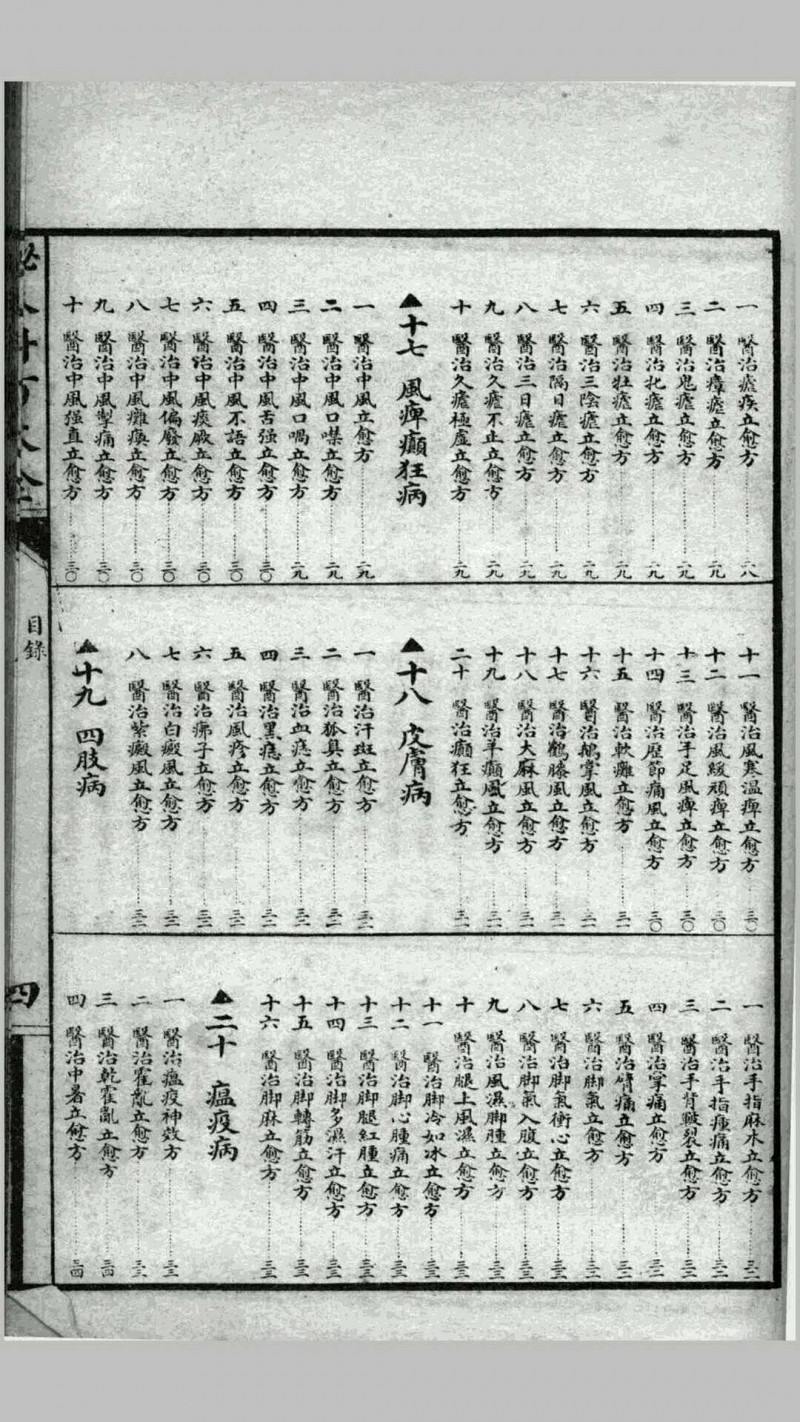 一 醫治瘧疾立愈方 二八
二 醫治瘴瘧立愈方 二九
三 醫治鬼瘧立愈方 二九
四 醫治牝瘧立愈方 二九
五 醫治牡瘧立愈方 二九
六 醫治三陰瘧立愈方 二九
七 醫治隔日瘧立愈方 二九
八 醫治三日瘧立愈方 二九
九 醫治久瘧不止立愈方 二九
十 醫治久瘧極虛立愈方 二九
▲十七 風痺癲狂病
一 醫治中風立愈方 二九
二 醫治中風口噤立愈方 二九
三 醫治中風口喎立愈方 二九
四 醫治中風舌强立愈方 三〇
五 醫治中風不語立愈方 三〇
六 醫治中風痰厥立愈方 三〇
七 醫治中風偏廢立愈方 三〇
八 醫治中風癱瘓立愈方 三〇
九 醫治中風掣痛立愈方 三〇
十 醫治中風强直立愈方 三〇
十一 醫治風寒温痺立愈方 三〇
十二 醫治風緩頑痺立愈方 三〇
十三 醫治手足風痺立愈方 三〇
十四 醫治歷節痛風立愈方 三〇
十五 醫治軟癱立愈方 三一
十六 醫治鵝掌風立愈方 三一
十七 醫治鶴膝風立愈方 三一
十八 醫治大麻風立愈方 三一
十九 醫治羊癲風立愈方 三一
二十 醫治癲狂立愈方 三一
▲十八 皮膚病
一 醫治汗斑立愈方
二 醫治狐臭立愈方
三 醫治血痣立愈方
四 醫治黑痣立愈方
五 醫治風疹立愈方
六 醫治疿子立愈方
七 醫治白癜風立愈方
八 醫治紫癜風立愈方
▲十九 四肢病
一 醫治手指麻木立愈方
二 醫治手指瘇痛立愈方
三 醫治手背皸裂立愈方
四 醫治掌痛立愈方
五 醫治臂痛立愈方
六 醫治脚氣立愈方
七 醫治脚氣衝心立愈方
八 醫治脚氣入腹立愈方
九 醫治風濕脚腫立愈方
十 醫治腿上風濕立愈方 三三
十一 醫治脚冷如冰立愈方 三三
十二 醫治脚心腫痛立愈方 三三
十三 醫治脚腿紅腫立愈方 三三
十四 醫治脚多濕汗立愈方 三三
十五 醫治脚轉筋立愈方 三三
十六 醫治脚麻立愈方 三三
▲二十 瘟疫病
一 醫治瘟疫神效方 三三
二 醫治霍亂立愈方 三三
三 醫治乾霍亂立愈方 三四
四 醫治中暑立愈方 三四
目錄
四